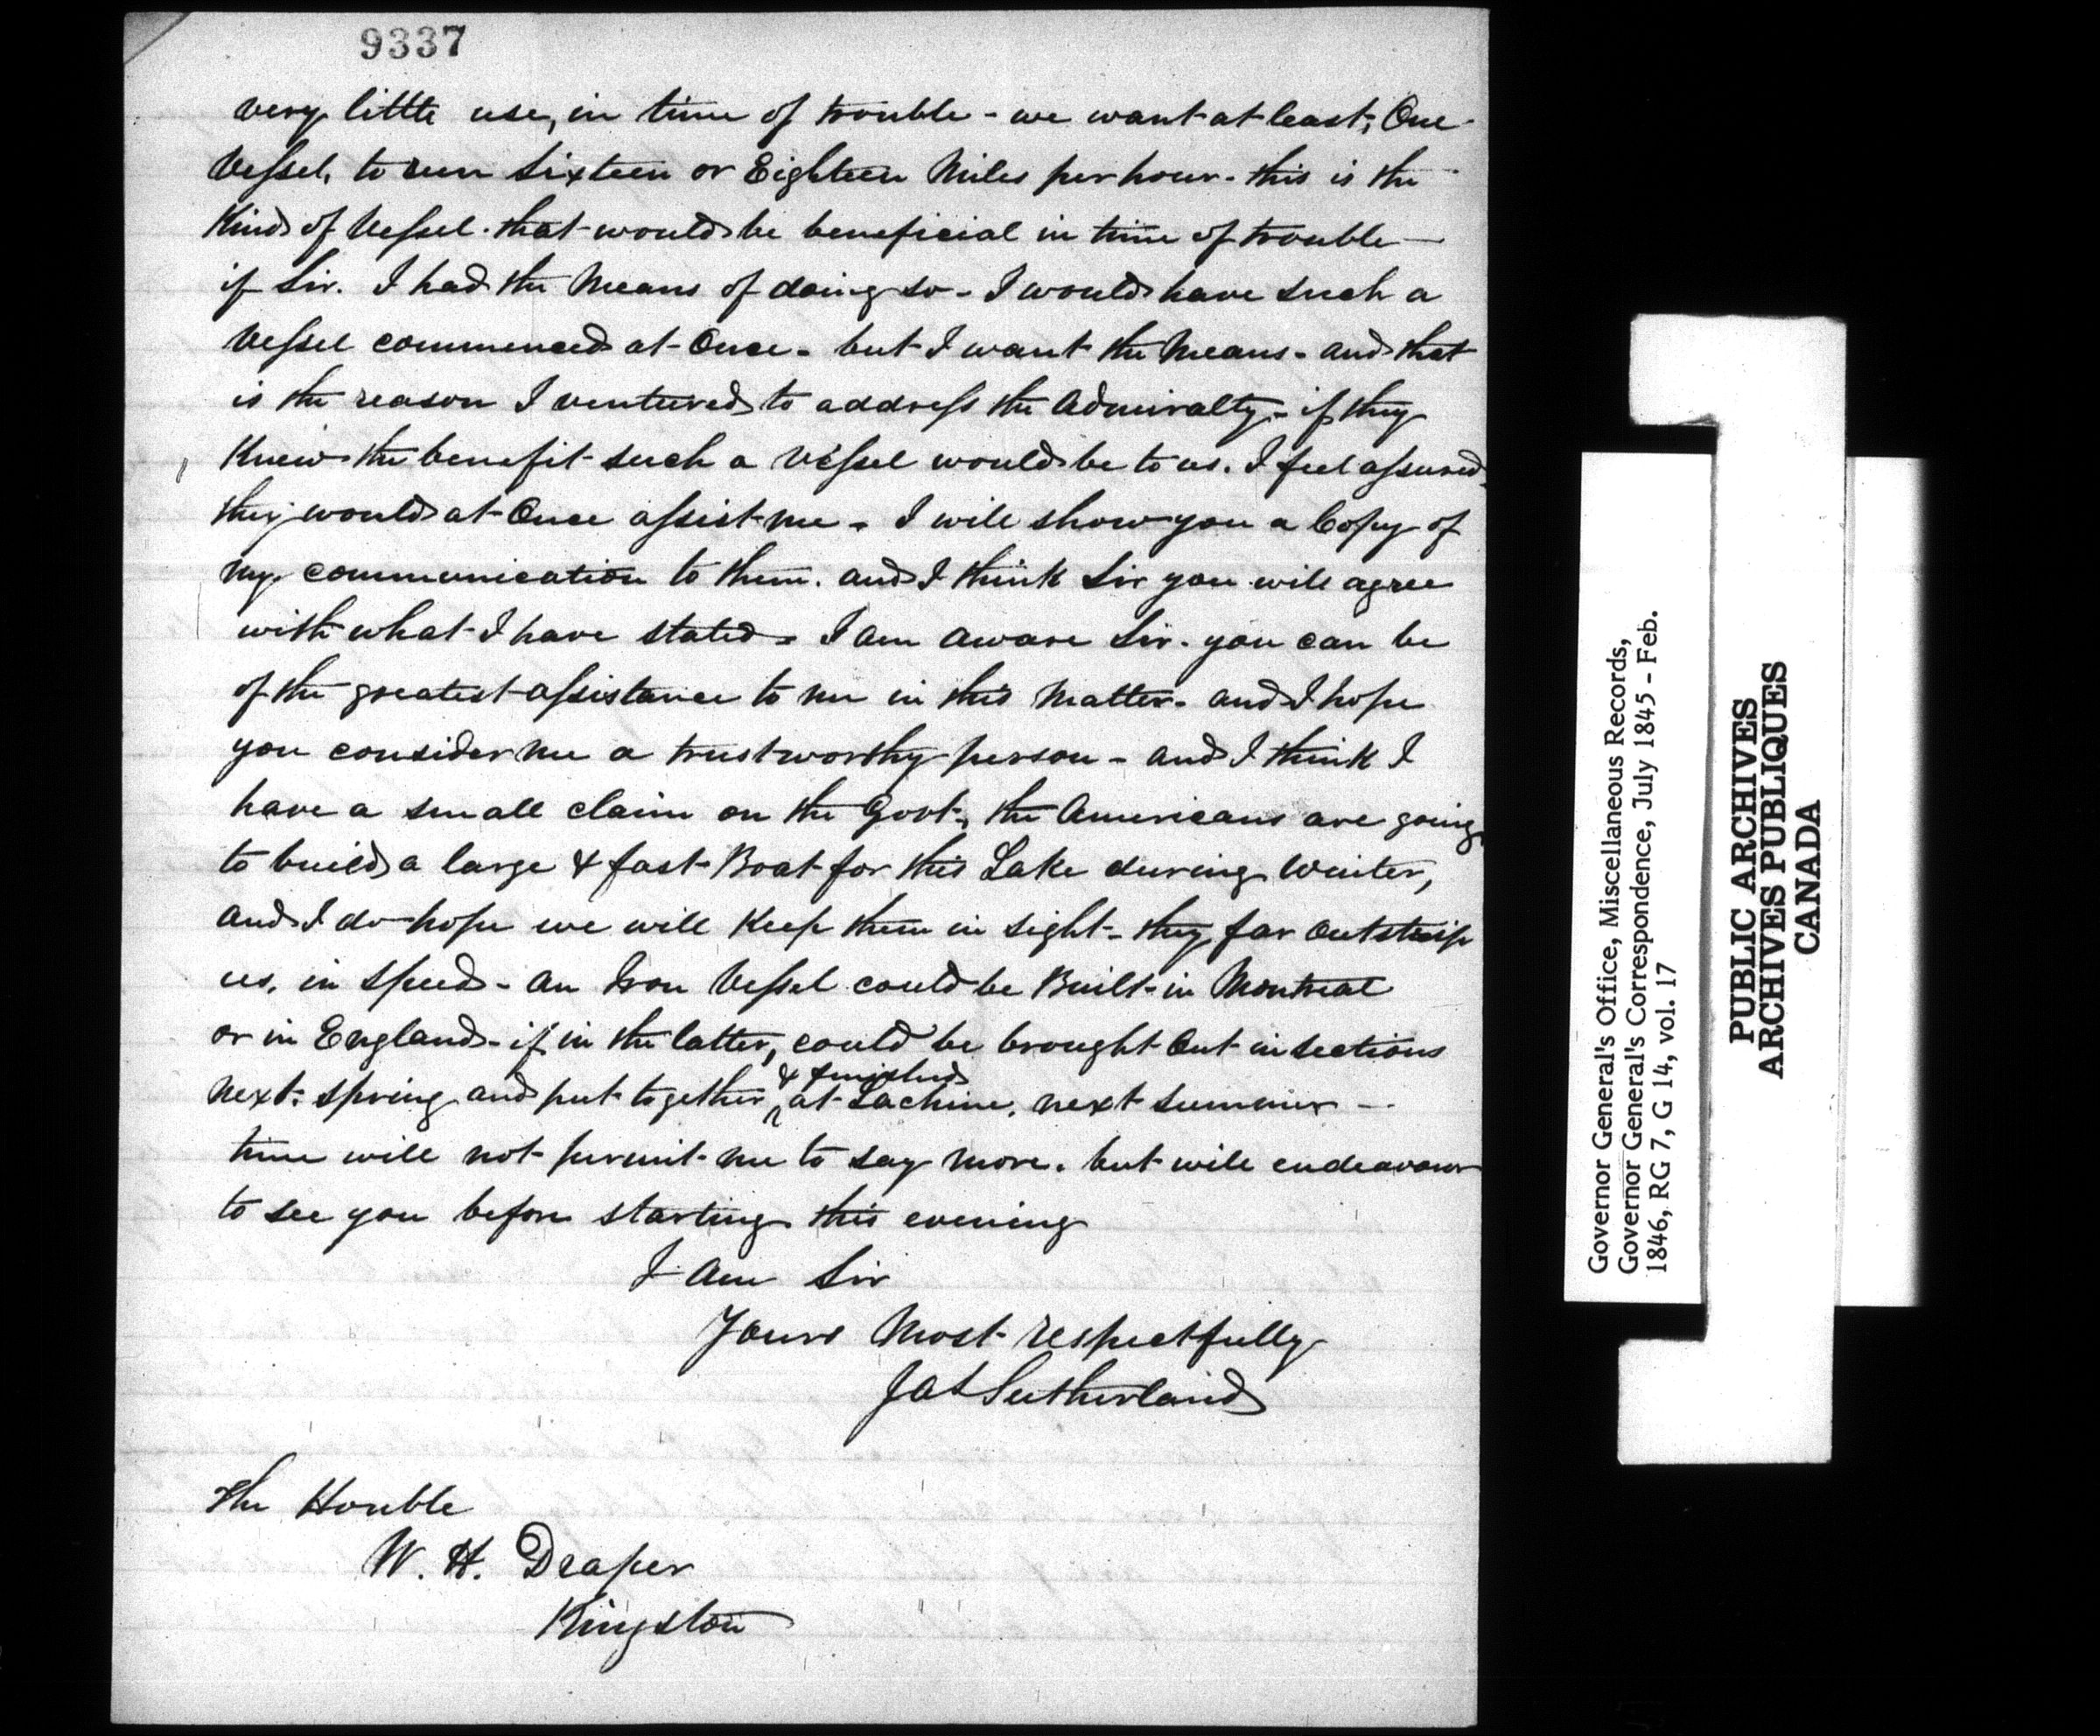 9337
very little use, in time of trouble - we want at least, One
Vessel, to run Sixteen or Eighteen Miles per hour - this is the
Kind of Vessel. that would be beneficial in time of trouble —
if Sir. I had the Means of doing so - I would have such a
Vessel commenced at Once - but I want the Means - and that
is the reason I ventured to address the Admiralty - if they
Knew the benefit such a Vessel would be to us. I feel assured
they would at Once assist me - I will show you a Copy of
my communication to them. and I think Sir you will agree
with what I have stated - I am aware Sir. you can be
of the greatest assistance to me in this Matter - and I hope
you consider me a trustworthy person - and I think I
have a small claim on the Govt., the Americans are going
to build a large & fast Boat for this Lake during Winter,
and I do hope we will Keep them in sight - they far outstrip
us, in Speed - an Iron Vessel could be Built in Montreal
or in England - if in the latter, could be brought Out in sections
next spring and put together & finished at Lachine, next summer —
time will not permit me to say more. but will endeavour
to see you before starting this evening
I am Sir
Yours Most respectfully
Jas Sutherland
The Honble
W. H. Draper
Kingston
Governor General's Office, Miscellaneous Records,
Governor General's Correspondence, July 1845 - Feb.
1846, RG 7, G 14, vol. 17
PUBLIC ARCHIVES
ARCHIVES PUBLIQUES
CANADA